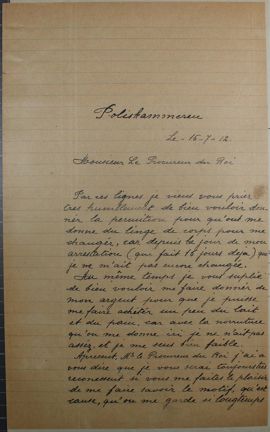 Poliskammeren
Le - 15-7-12.
Monsieur Le Procureur du Roi
Par ces lignes je viens vous prier
tres humblement de bien vouloir don
ner la permition pour qu'ont me
donne du linge de corps pour me
changer, car depuis le jour de mon
arrestation (que fait 15 jours deja) que
je ne m'ait pas encore changée.
Au même temps je vous suplie
de bien vouloir me faire donnér de
mon argent pour que je puisse
me faire acheter un peu du lait
et du pain, car avec la noriture
qu'on me donne ici je ne n'ait pas
assez, et je me sens bien faible.
Mr le Procureur du Roi j'ai a
vous dire que je vous serai toujours
reconessent si vous me faites le plaisir
de me faire savoir le motif, qu'est
cause, qu'on me garde si longtemps